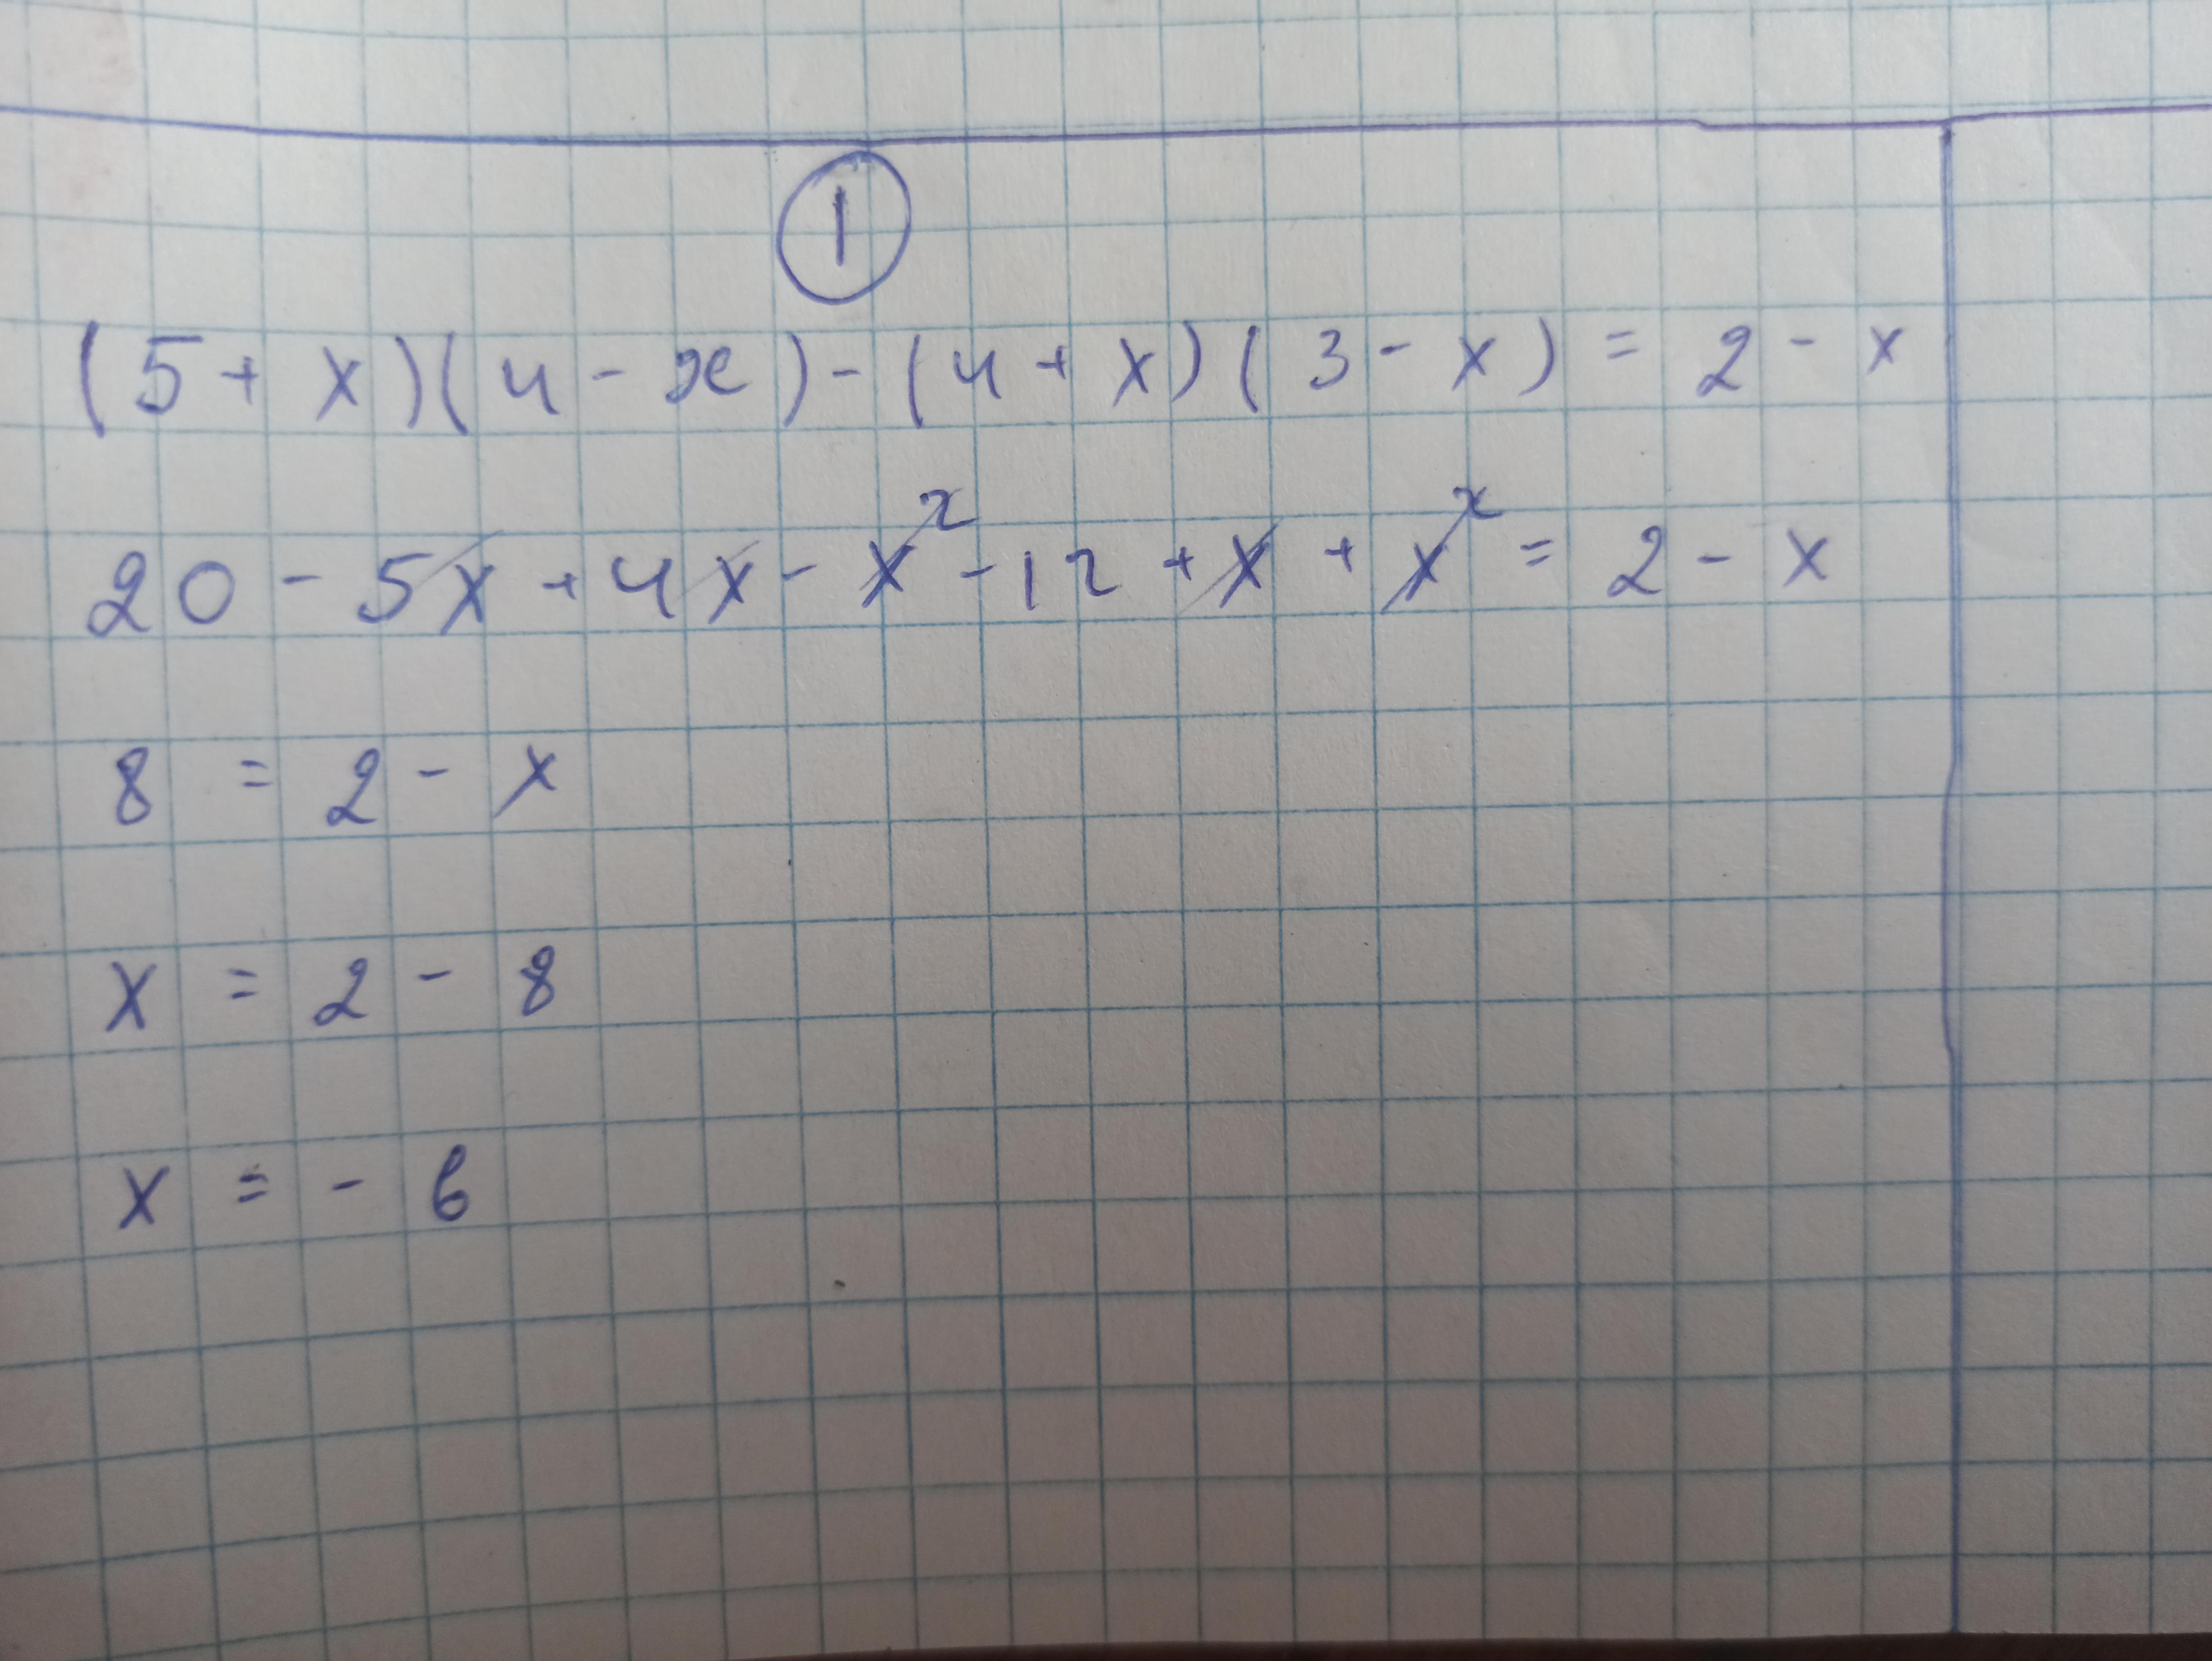 1
(5 + x)(4 - x) - (4 + x)(3 - x) = 2 - x
20 - 5x + 4x - x² - 12 + x + x² = 2 - x
8 = 2 - x
x = 2 - 8
x = - 6